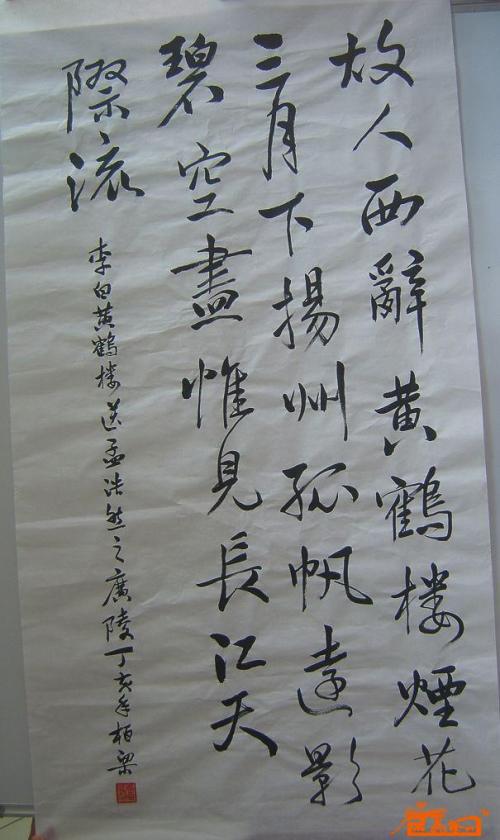 故人西辭黄鶴楼煙花
三月下揚州孤帆遠影
碧空盡惟見長江天
際流
李白黄鶴楼送孟浩然之廣陵丁亥年柏梁